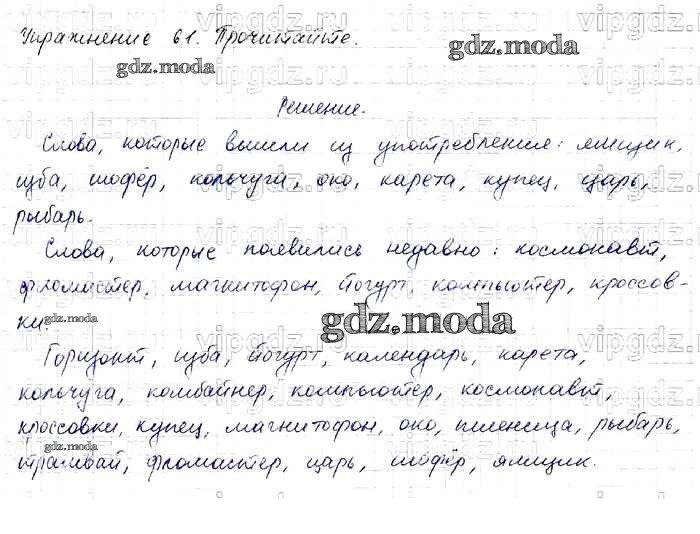 Упражнение 61. Прочитайте.
gdz.moda
gdz.moda
Решение.
Слова, которые вышли из употребления: ямщик,
изба, шофёр, кольчуга, око, карета, купец, царь,
рыбарь.
Слова, которые появились недавно: космонавт,
фломастер, магнитофон, йогурт, компьютер, кроссов-
ки.
gdz.moda
gdz.moda
Горизонт, изба, йогурт, календарь, карета,
кольчуга, комбайнер, компьютер, космонавт,
кроссовки, купец, магнитофон, око, пшеница, рыбарь,
gdz.moda
трамвай, фломастер, царь, шофёр, ямщик.
vipgdz.ru